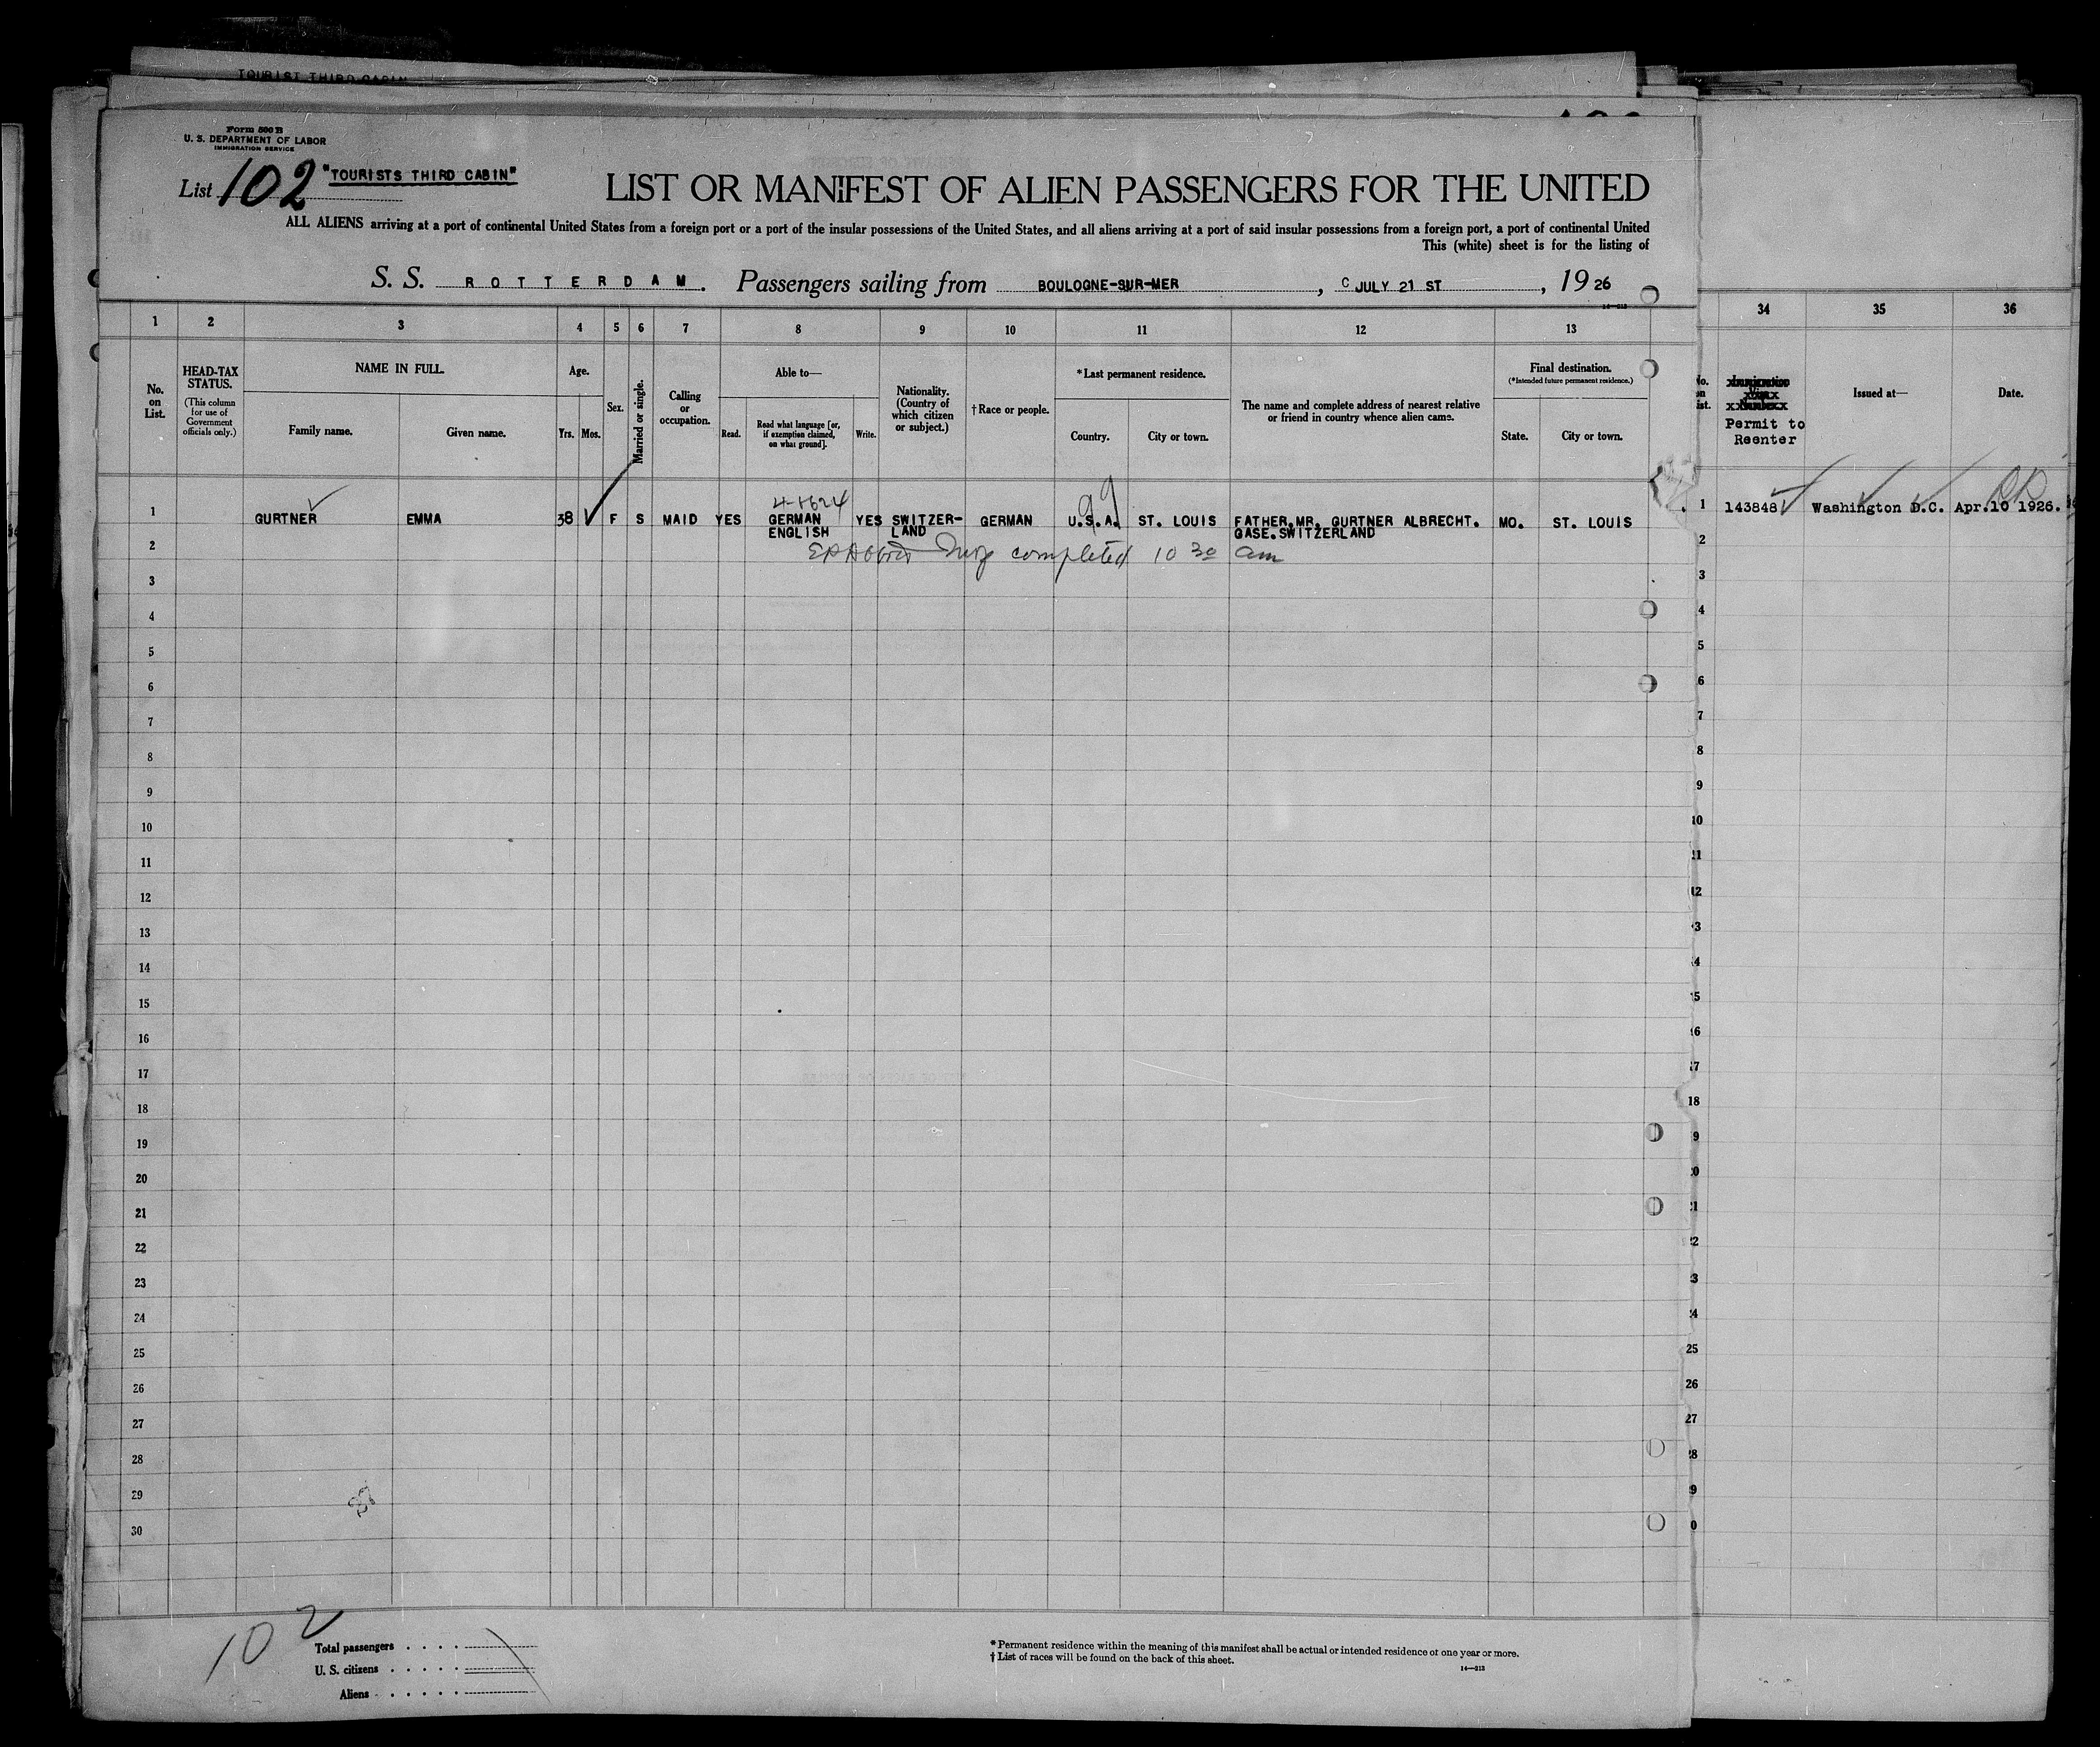 TOURIST THIRD CABIN
Form 500 B
U. S. DEPARTMENT OF LABOR
IMMIGRATION SERVICE
List 102 "TOURISTS THIRD CABIN"
LIST OR MANIFEST OF ALIEN PASSENGERS FOR THE UNITED
ALL ALIENS arriving at a port of continental United States from a foreign port or a port of the insular possessions of the United States, and all aliens arriving at a port of said insular possessions from a foreign port, a port of continental United
This (white) sheet is for the listing of
S. S. ROTTERDAM. Passengers sailing from BOULOGNE-SUR-MER, C JULY 21 ST, 1926
1 2 3 4 5 6 7 8 9 10 11 12 13 34 35 36
No. on List.
HEAD-TAX STATUS.
(This column for use of Government officials only.)
NAME IN FULL.
Family name.
Given name.
Age.
Yrs. Mos.
Sex.
Married or single.
Calling or occupation.
Able to—
Read.
Read what language [or, if exemption claimed, on what ground].
Write.
Nationality. (Country of which citizen or subject.)
†Race or people.
*Last permanent residence.
Country.
City or town.
The name and complete address of nearest relative or friend in country whence alien came.
Final destination.
(*Intended future permanent residence.)
State.
City or town.
Permit to
Reenter
Issued at—
Date.
1 GURTNER EMMA 38 F S MAID YES GERMAN YES SWITZER- GERMAN U.S.A. ST. LOUIS FATHER.MR. GURTNER ALBRECHT. MO. ST. LOUIS 1 143848 Washington D.C. Apr.10 1926.
ENGLISH LAND GASE.SWITZERLAND
2 completed 10 30 am 2
3 3
4 4
5 5
6 6
7 7
8 8
9 9
10 10
11 11
12 12
13 13
14 14
15 15
16 16
17 17
18 18
19 19
20 20
21 21
22 22
23 23
24 24
25 25
26 26
27 27
28 28
29 29
30 30
102
Total passengers
U. S. citizens
Aliens
*Permanent residence within the meaning of this manifest shall be actual or intended residence of one year or more.
†List of races will be found on the back of this sheet.
14—213